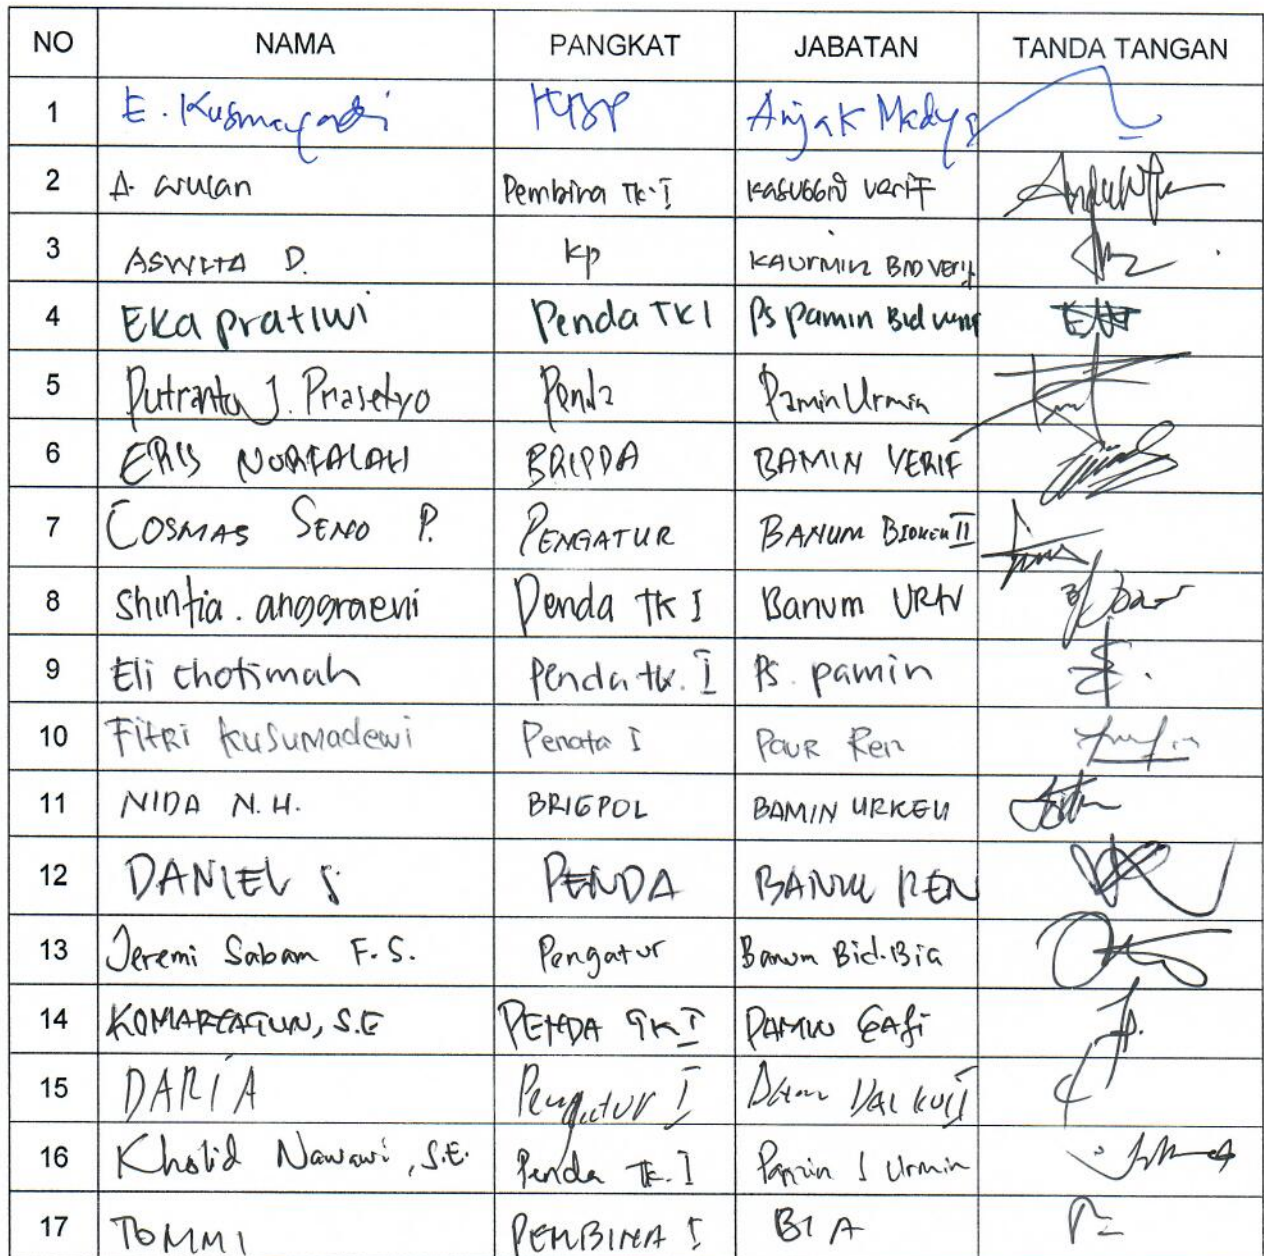 NO NAMA PANGKAT JABATAN TANDA TANGAN
1 E. Kusmayadi KBP Anjak Madya
2 A. wulan Pembina Tk.I Kasubbid verif
3 ASWITA D. Kp KAURMIN BID VERIF
4 Eka pratiwi Penda TK I Ps pamin Bid verif
5 Putranto J. Prasetyo Penda Pamin Urmin
6 ERIS NURFALAH BRIPDA BAMIN VERIF
7 COSMAS SENO P. PENGATUR BANUM BIDKEU II
8 shintia. anggraeni Penda TK I Banum
9 Eli chotimah Penda tk. I Ps. pamin
10 Fitri kusumadewi Penata I Paur Ren
11 NIDA N.H. BRIGPOL BAMIN URKEU
12 DANIEL S. PENDA BANUM REN
13 Jeremi Sabam F.S. Pengatur Banum Bid.Bia
14 S.E PENDA TK I PAMIN
15 DARIA Pengatur I
16 Kholid Nawawi, S.E. Penda Tk. I Pamin 1 Urmin
17 TOMMI PEMBINA I BIA